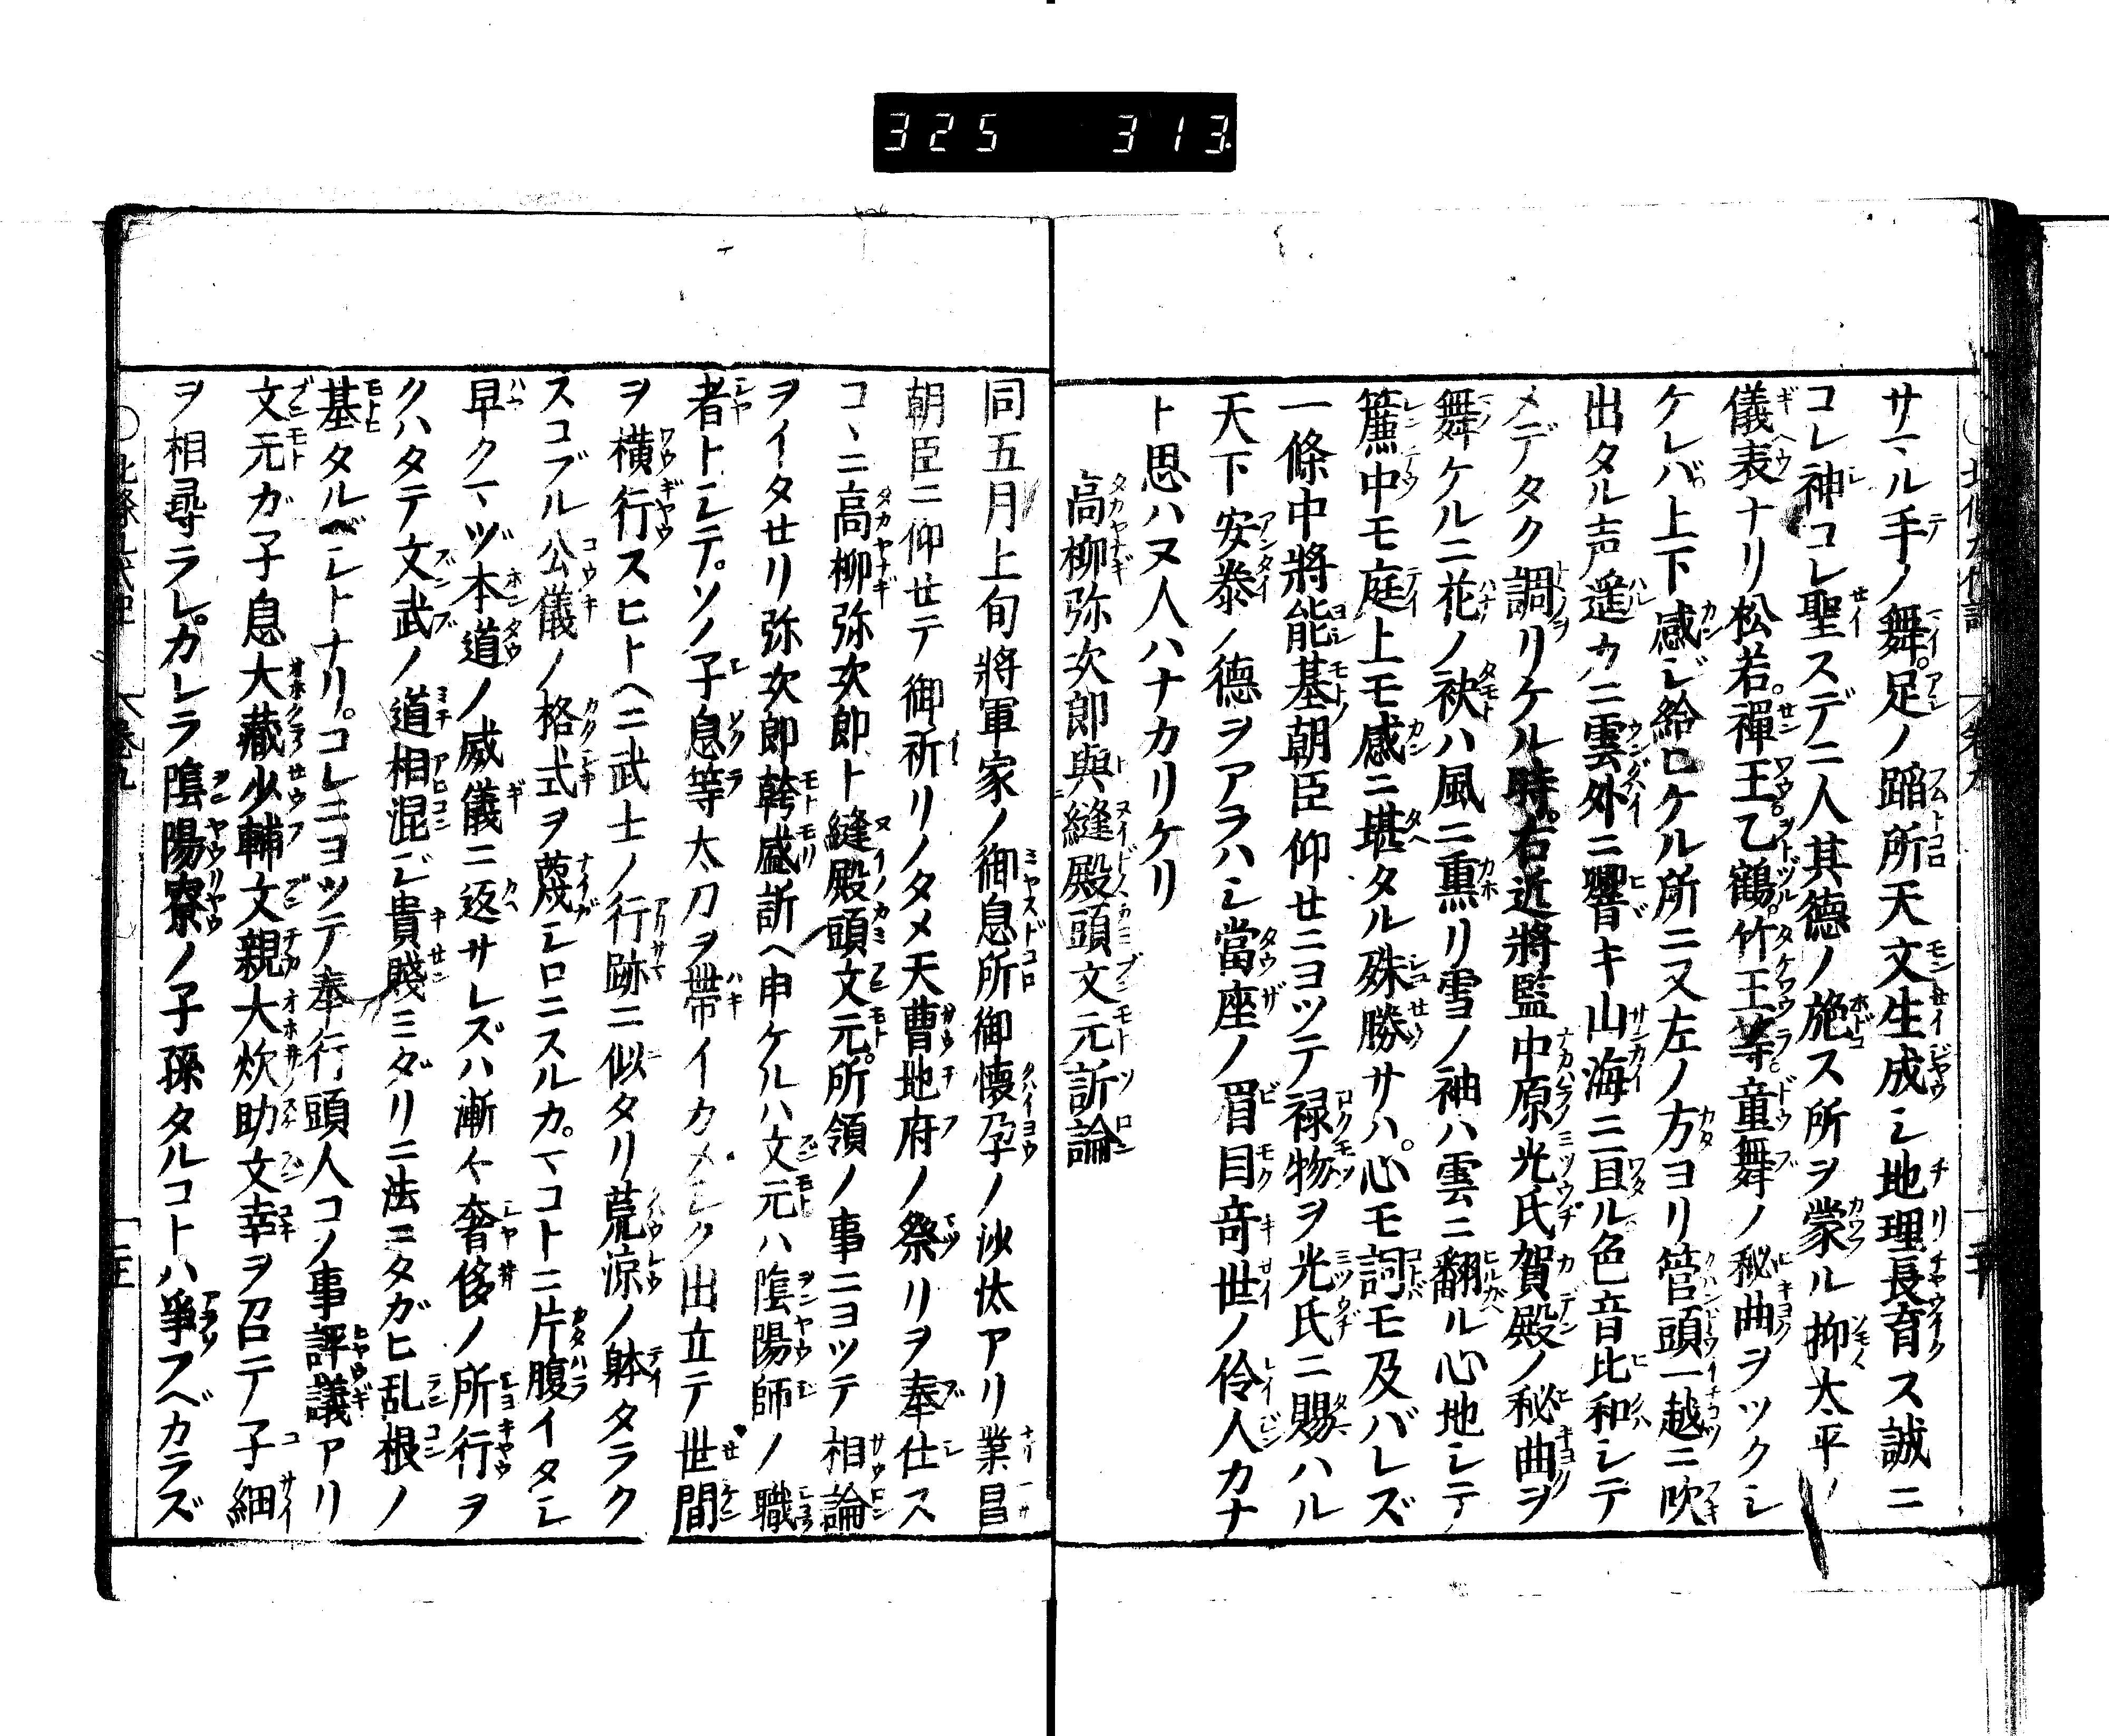 325 313
サヽル手ノ舞。足ノ蹈所天文生成シ地理長育ス誠ニ
コレ神コレ聖スデニ人其徳ノ施ス所ヲ蒙ル抑太平ノ
儀表ナリ松若。禪王。乙鶴。竹王等。童舞ノ秘曲ヲツクシ
ケレバ。上下感ジ給ヒケル所ニ又左ノ方ヨリ管頭一越ニ吹
出タル声遥カニ雲外ニ響キ山海ニ亘ル。色音比和シテ
メデタク調リケル時。右近將監中原光氏賀殿ノ秘曲ヲ
舞ケルニ花ノ袂ハ風ニ薫リ雪ノ袖ハ雲ニ翻ル心地シテ
簾中モ庭上モ感ニ堪タル殊勝サハ。心モ詞モ及バレズ
一條中將能基朝臣仰セニヨツテ禄物ヲ光氏ニ賜ハル
天下安泰ノ徳ヲアラハシ當座ノ眉目奇世ノ伶人カナ
ト思ハヌ人ハナカリケリ
高柳弥次郎與縫殿頭文元訴論
同五月上旬將軍家ノ御息所御懐孕ノ沙汰アリ業昌
朝臣ニ仰セテ御祈リノタメ天曹地府ノ祭リヲ奉仕ス
コヽニ高柳弥次郎ト縫殿頭文元。所領ノ事ニヨツテ相論
ヲイタセリ弥次郎幹盛訴ヘ申ケルハ文元ハ陰陽師ノ職
者トシテ。ソノ子息等太刀ヲ帶イカメシク出立テ世間
ヲ横行スヒトヘニ武士ノ行跡ニ似タリ荒涼ノ躰タラク
スコブル公儀ノ格式ヲ蔑シロニスルカ。マコトニ片腹イタシ
早クマヅ本道ノ威儀ニ返サレズハ漸々奢侈ノ所行ヲ
クハタテ文武ノ道相混ジ貴賤ミダリニ法ニタガヒ乱根ノ
基タルベシトナリ。コレニヨツテ奉行頭人コノ事評議アリ
文元ガ子息大藏少輔文親大炊助文幸ヲ召テ子細
ヲ相尋ラレ。カレラ陰陽寮ノ子孫タルコトハ爭フベカラズ